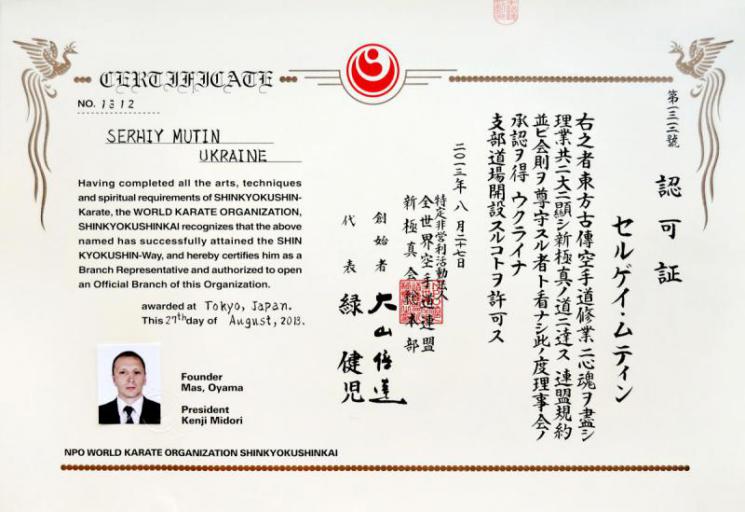 CERTIFICATE
NO. 1312
SERHIY MUTIN
UKRAINE
Having completed all the arts, techniques
and spiritual requirements of SHINKYOKUSHIN-
Karate, the WORLD KARATE ORGANIZATION,
SHINKYOKUSHINKAI recognizes that the above
named has successfully attained the SHIN
KYOKUSHIN-Way, and hereby certifies him as a
Branch Representative and authorized to open
an Official Branch of this Organization.
awarded at Tokyo, Japan.
This 27th day of August, 2013.
Founder
Mas, Oyama
President
Kenji Midori
NPO WORLD KARATE ORGANIZATION SHINKYOKUSHINKAI
第一三一二號
認可証
セルゲイ・ムティン
右之者東方古傳空手道修業ニ心魂ヲ盡シ
理業共ニ大ニ顯シ新極真ノ道ニ達ス 連盟規約
並ビ会則ヲ尊守スル者ト看ナシ此ノ度理事会ノ
承認ヲ得 ウクライナ
支部道場開設スルコトヲ許可ス
二〇一三年 八月二十七日
特定非営利活動法人
全世界空手道連盟
新極真会総本部
創始者 大山倍達
代表 緑健児